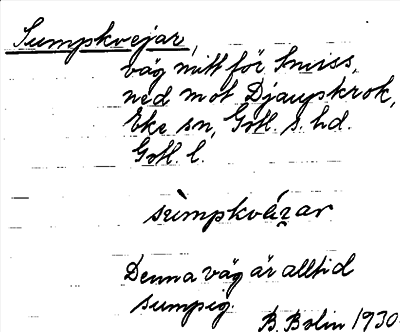 Sumpkvejar,
väg mitt för Smiss,
ned mot Djaupskrok,
Eke sn, Gotl. s. hd.
Gotl. l.
sùmpkvärar
Denna väg är alltid
sumpig.
B. Bolin 1930.